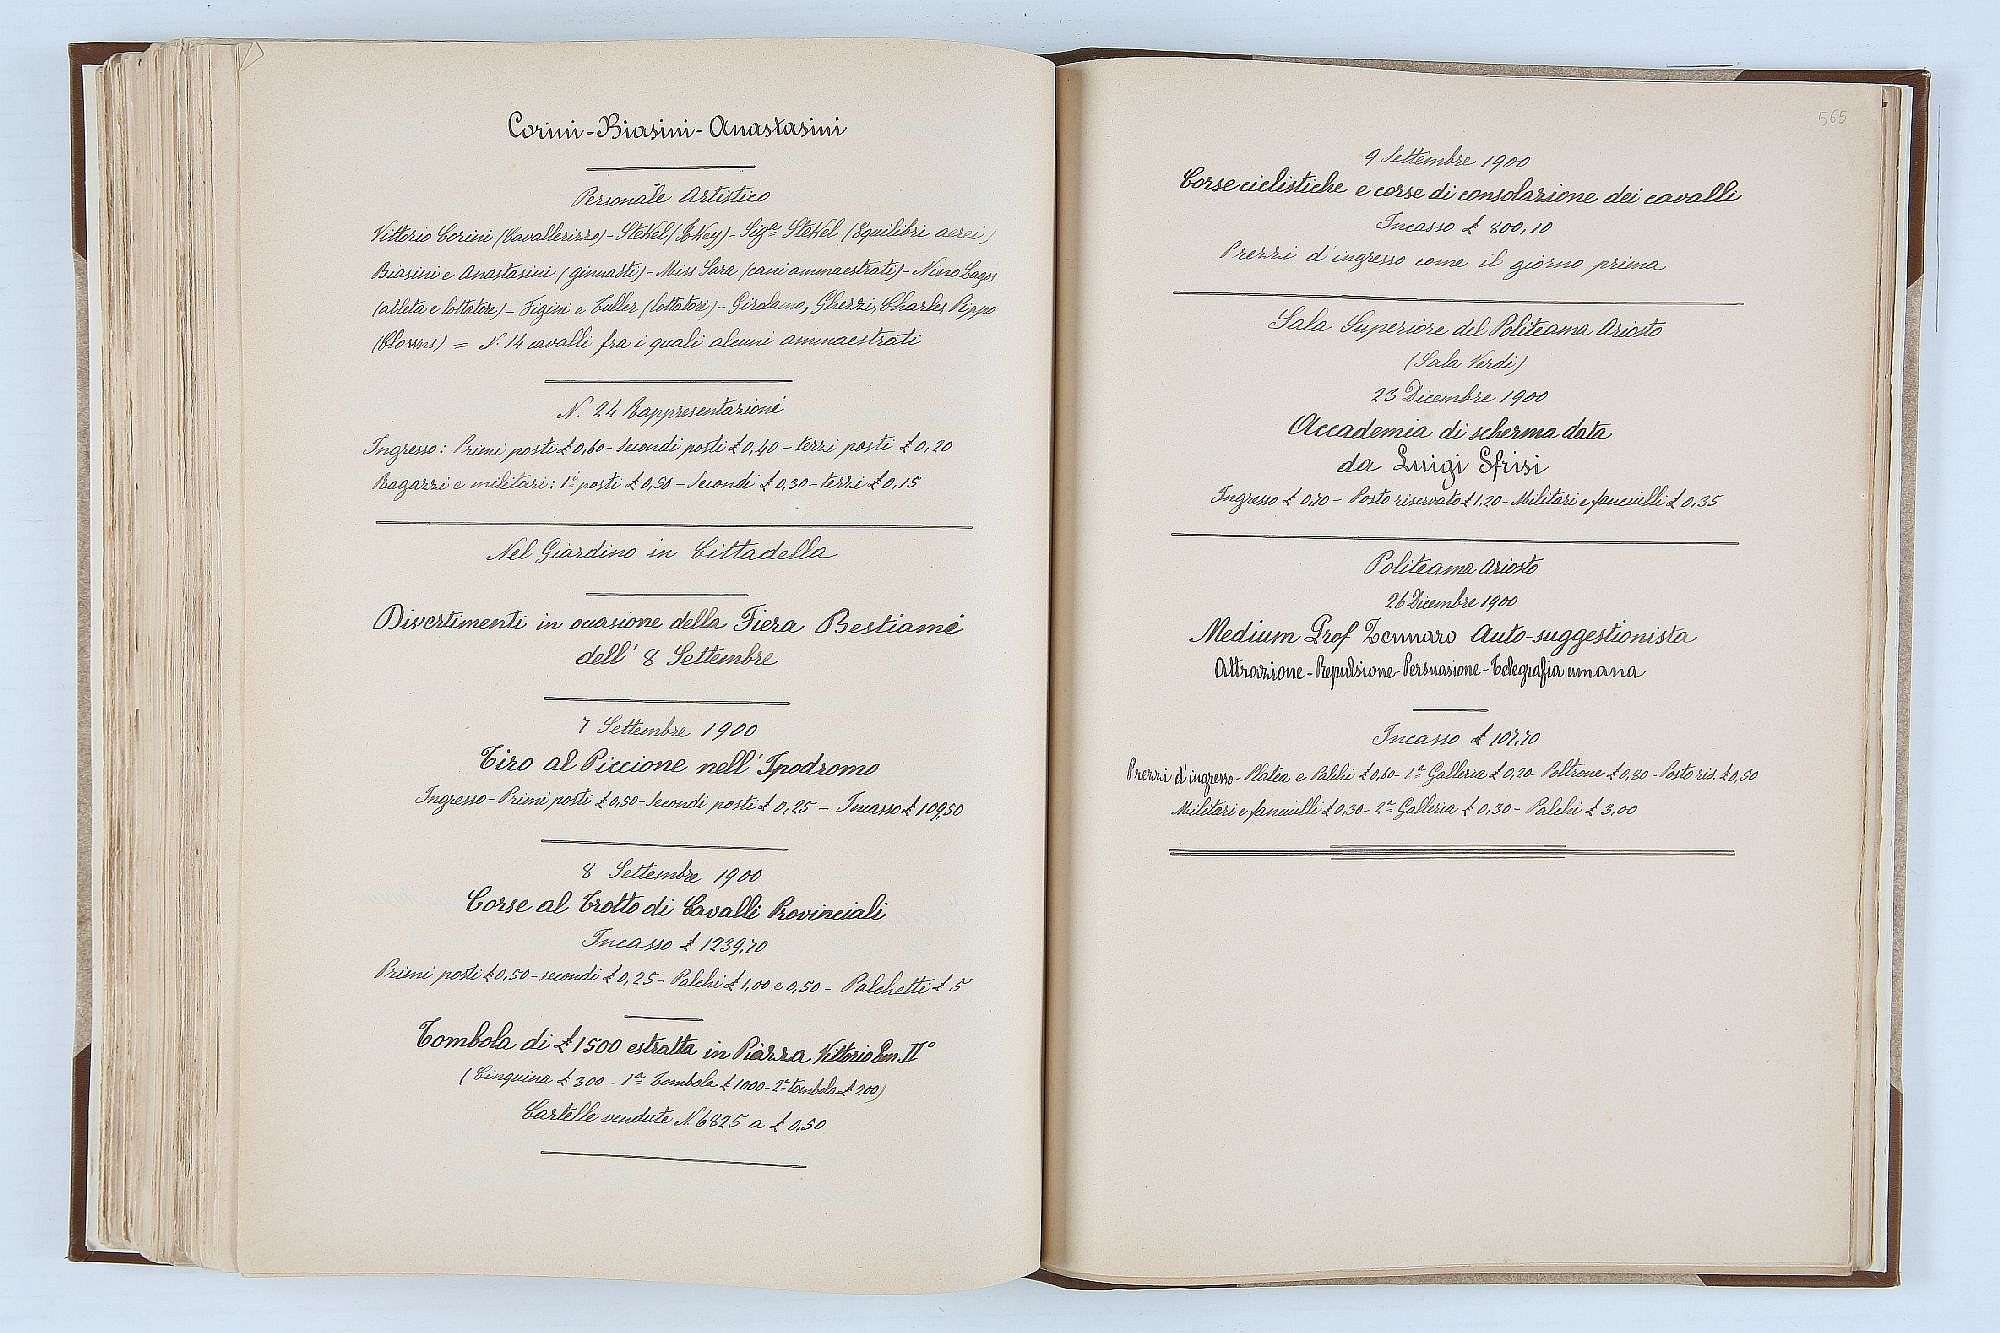 Corini-Biasini-Anastasini
Personale Artistico
Vittorio Corini (Cavallerizzo) - Stekel (Jokey) - Sigra Stekel (Equilibri aerei)
Biasini e Anastasini (ginnasti) - Miss Sara (cani ammaestrati) - Nino Lagos
(atleta e lottatore) - Figini e Tuller (lottatori) - Girolamo, Ghezzi, Charles Pippo
(Clowns) = N. 14 cavalli fra i quali alcuni ammaestrati
N. 24 Rappresentazioni
Ingresso: Primi posti £ 0,60 - secondi posti £ 0,40 - terzi posti £ 0,20
Ragazzi e militari: 1i posti - secondi £ 0,30 - terzi £ 0,15
Nel Giardino in Cittadella
Divertimenti in occasione della Fiera Bestiame
dell' 8 Settembre
7 Settembre 1900
Tiro al Piccione nell' Ipodromo
Ingresso - Primi posti £ 0,50 - secondi posti £ 0,25 - Incasso £ 109,50
8 Settembre 1900
Corse al Trotto di Cavalli Provinciali
Incasso £ 1239,70
Primi posti £ 0,50 - secondi £ 0,25 - Palchi £ 1,00 e 0,50 - Palchetti £ 5
Tombola di £ 1500 estratta in Piazza Vittorio Em. IIº
(Cinquina £ 300 - 1a Tombola £ 1000 - 2a tombola £ 200)
Cartelle vendute N. 6825 a £ 0,50
565
9 Settembre 1900
Corse ciclistiche e corse di consolazione dei cavalli
Incasso £ 800,10
Prezzi d'ingresso come il giorno prima
Sala Superiore del Politeama Ariosto
(Sala Verdi)
23 Dicembre 1900
Accademia di scherma data
da Luigi Sfrisi
Ingresso £ 0,70 - Posto riservato £ 1,20 - Militari e fanciulli £ 0,35
Politeama Ariosto
26 Dicembre 1900
Medium Prof Zennaro Auto-suggestionista
Attrazione - Repulsione - Persuasione - Telegrafia umana
Incasso £ 107,70
Prezzi d'ingresso - Platea e Palchi £ 0,60 - 1a Galleria £ 0,20 Poltrone £ 0,80 - Posto ris. £ 0,50
Militari e fanciulli £ 0,30 - 2a Galleria £ 0,30 - Palchi £ 3,00